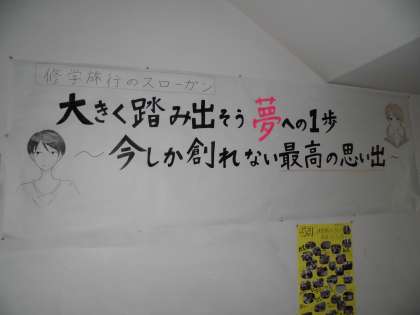 修学旅行のスローガン
大きく踏み出そう夢への1歩
～今しか創れない最高の思い出～